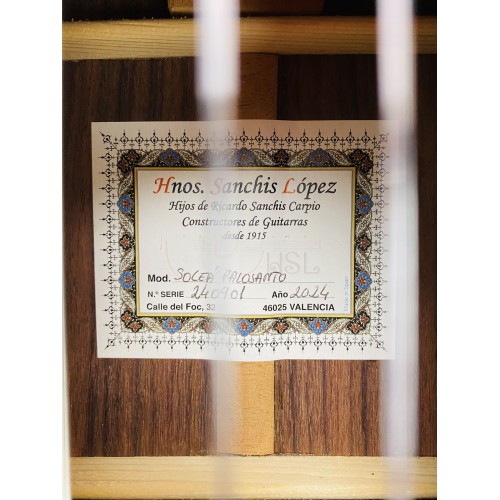 Hnos. Sanchis López
Hijos de Ricardo Sanchis Carpio
Constructores de Guitarras
desde 1915
HSL
Mod. SOLEÁ PALOSANTO
N.º SERIE 240901 Año 2024
Calle del Foc, 32 46025 VALENCIA